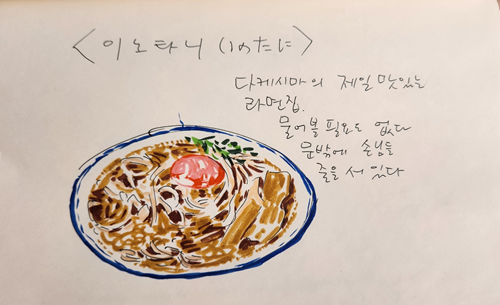 <이노타니 (いのたに>
다케시마의 제일 맛있는
라면집.
물어볼 필요도 없다
문밖에 손님들
줄을 서 있다